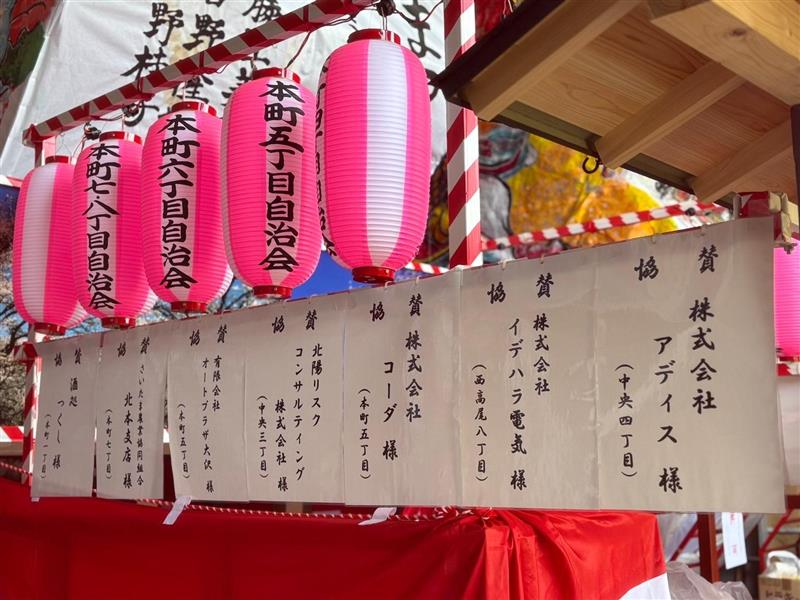 本町七・八丁目自治会
本町六丁目自治会
本町五丁目自治会
協賛
株式会社
アディス 様
（中央四丁目）
協賛
株式会社
イデハラ電気 様
（西高尾八丁目）
協賛
株式会社
コーダ 様
（本町五丁目）
協賛
北陽リスク
コンサルティング
株式会社 様
（中央三丁目）
協賛
有限会社
オートプラザ大沢 様
（本町五丁目）
協賛
さいたま農業協同組合
北本支店 様
（本町七丁目）
協賛
酒処
つくし 様
（本町一丁目）